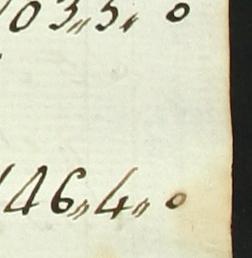 103„5„ 0
146„4„ 0